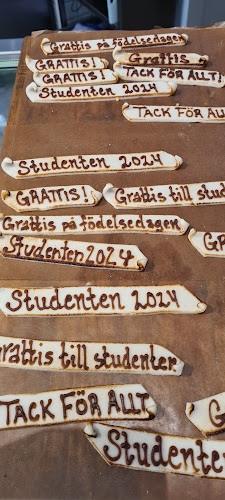 Grattis på födelsedagen
GRATTIS!
Grattis
GRATTIS!
TACK FÖR ALLT!
Studenten 2024
TACK FÖR ALL
Studenten 2024
GRATTIS!
Grattis till stud
Grattis på födelsedagen
GRA
Studenten 2024
Studenten 2024
Grattis till studenten
TACK FÖR ALLT
G
Studenten